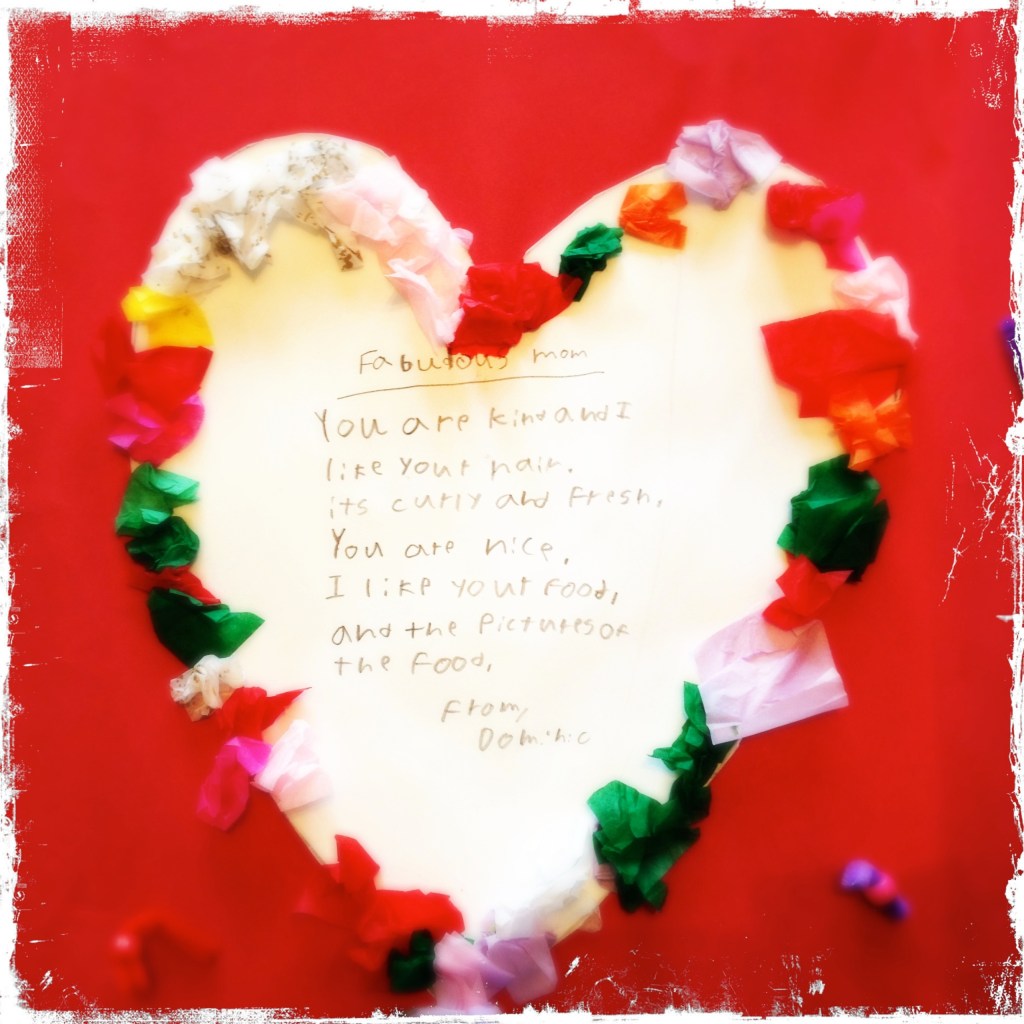 Fabulous mom
You are kind and I
like your hair.
its curly and Fresh.
You are nice.
I like your Food,
and the Pictures of
the Food,
From,
Dominic